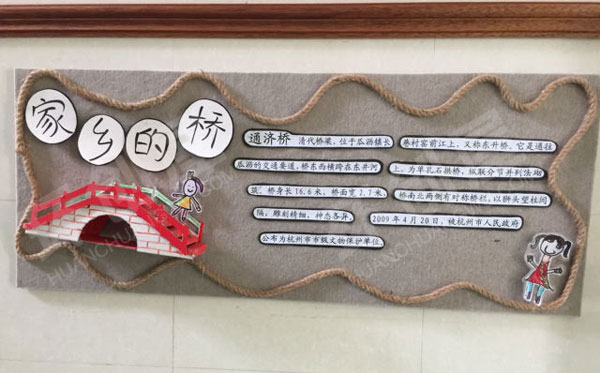 家乡的桥
通济桥 清代桥梁，位于瓜沥镇长
巷村窑前江上，又称东升桥。它是通往
瓜沥的交通要道，桥东西横跨在东井河
上，为单孔石拱桥，纵联分节并列法砌
筑。桥身长16.6米，桥面宽2.7米，
桥南北两侧有对称桥栏，以狮头望柱间
隔，雕刻精细，神态各异。
2009年4月20日，被杭州市人民政府
公布为杭州市市级文物保护单位